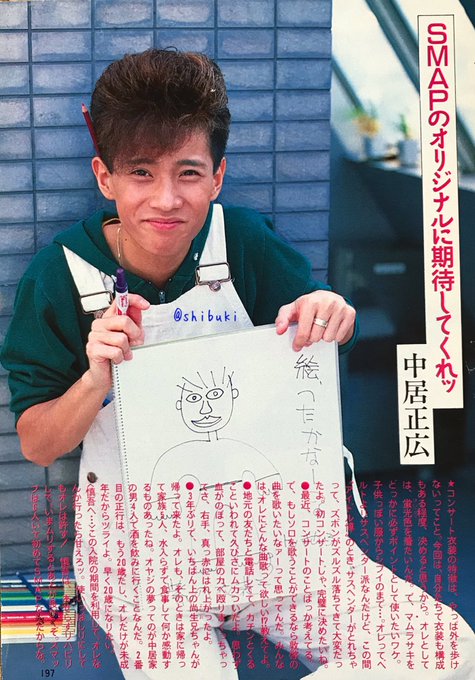 SMAPのオリジナルに期待してくれッ
中居正広
絵、ったかな
@shibuki
★コンサート衣装の特徴は、やっぱ外を歩け
ないってこと。今回は、自分たちで衣装も構成
もある程度、決めると思うから、オレとして
は、蛍光色で着たいんだって。マムラサキを
どっかに必ずポイントとして使いたいワケ。
たよ。初コンサートじゃ、完璧に決めたいね。
●最近、コンサートのことばっか考えてる。
て、もしソロを歌うことができるなら放
曲を歌いたいなー！って思ってんだ。みんな
は、オレにどんな曲歌って欲しい？教えてよ。
●地元の友だちと電話してて、カチンとくるこ
血がのぼって、部屋のドア殴りまくっちゃっ
てさ、右手、真っ赤にはれ上がったよ。
●3年ぶりで、いちばん上の尚生兄ちゃんが
帰って来たよ。オレも、そのときは家に帰っ
て家族5人、水入らずで食事して何か感動す
るものあったね。オヤジの夢ってのが中居家
の男4人で酒を飲みに行くことなんだ。2番
目の正行は、もう20歳だし、オレだけが未成
年だからツライよ。早く20歳になりたい。
慎吾へ…この入院の期間を利用して、オレな
197